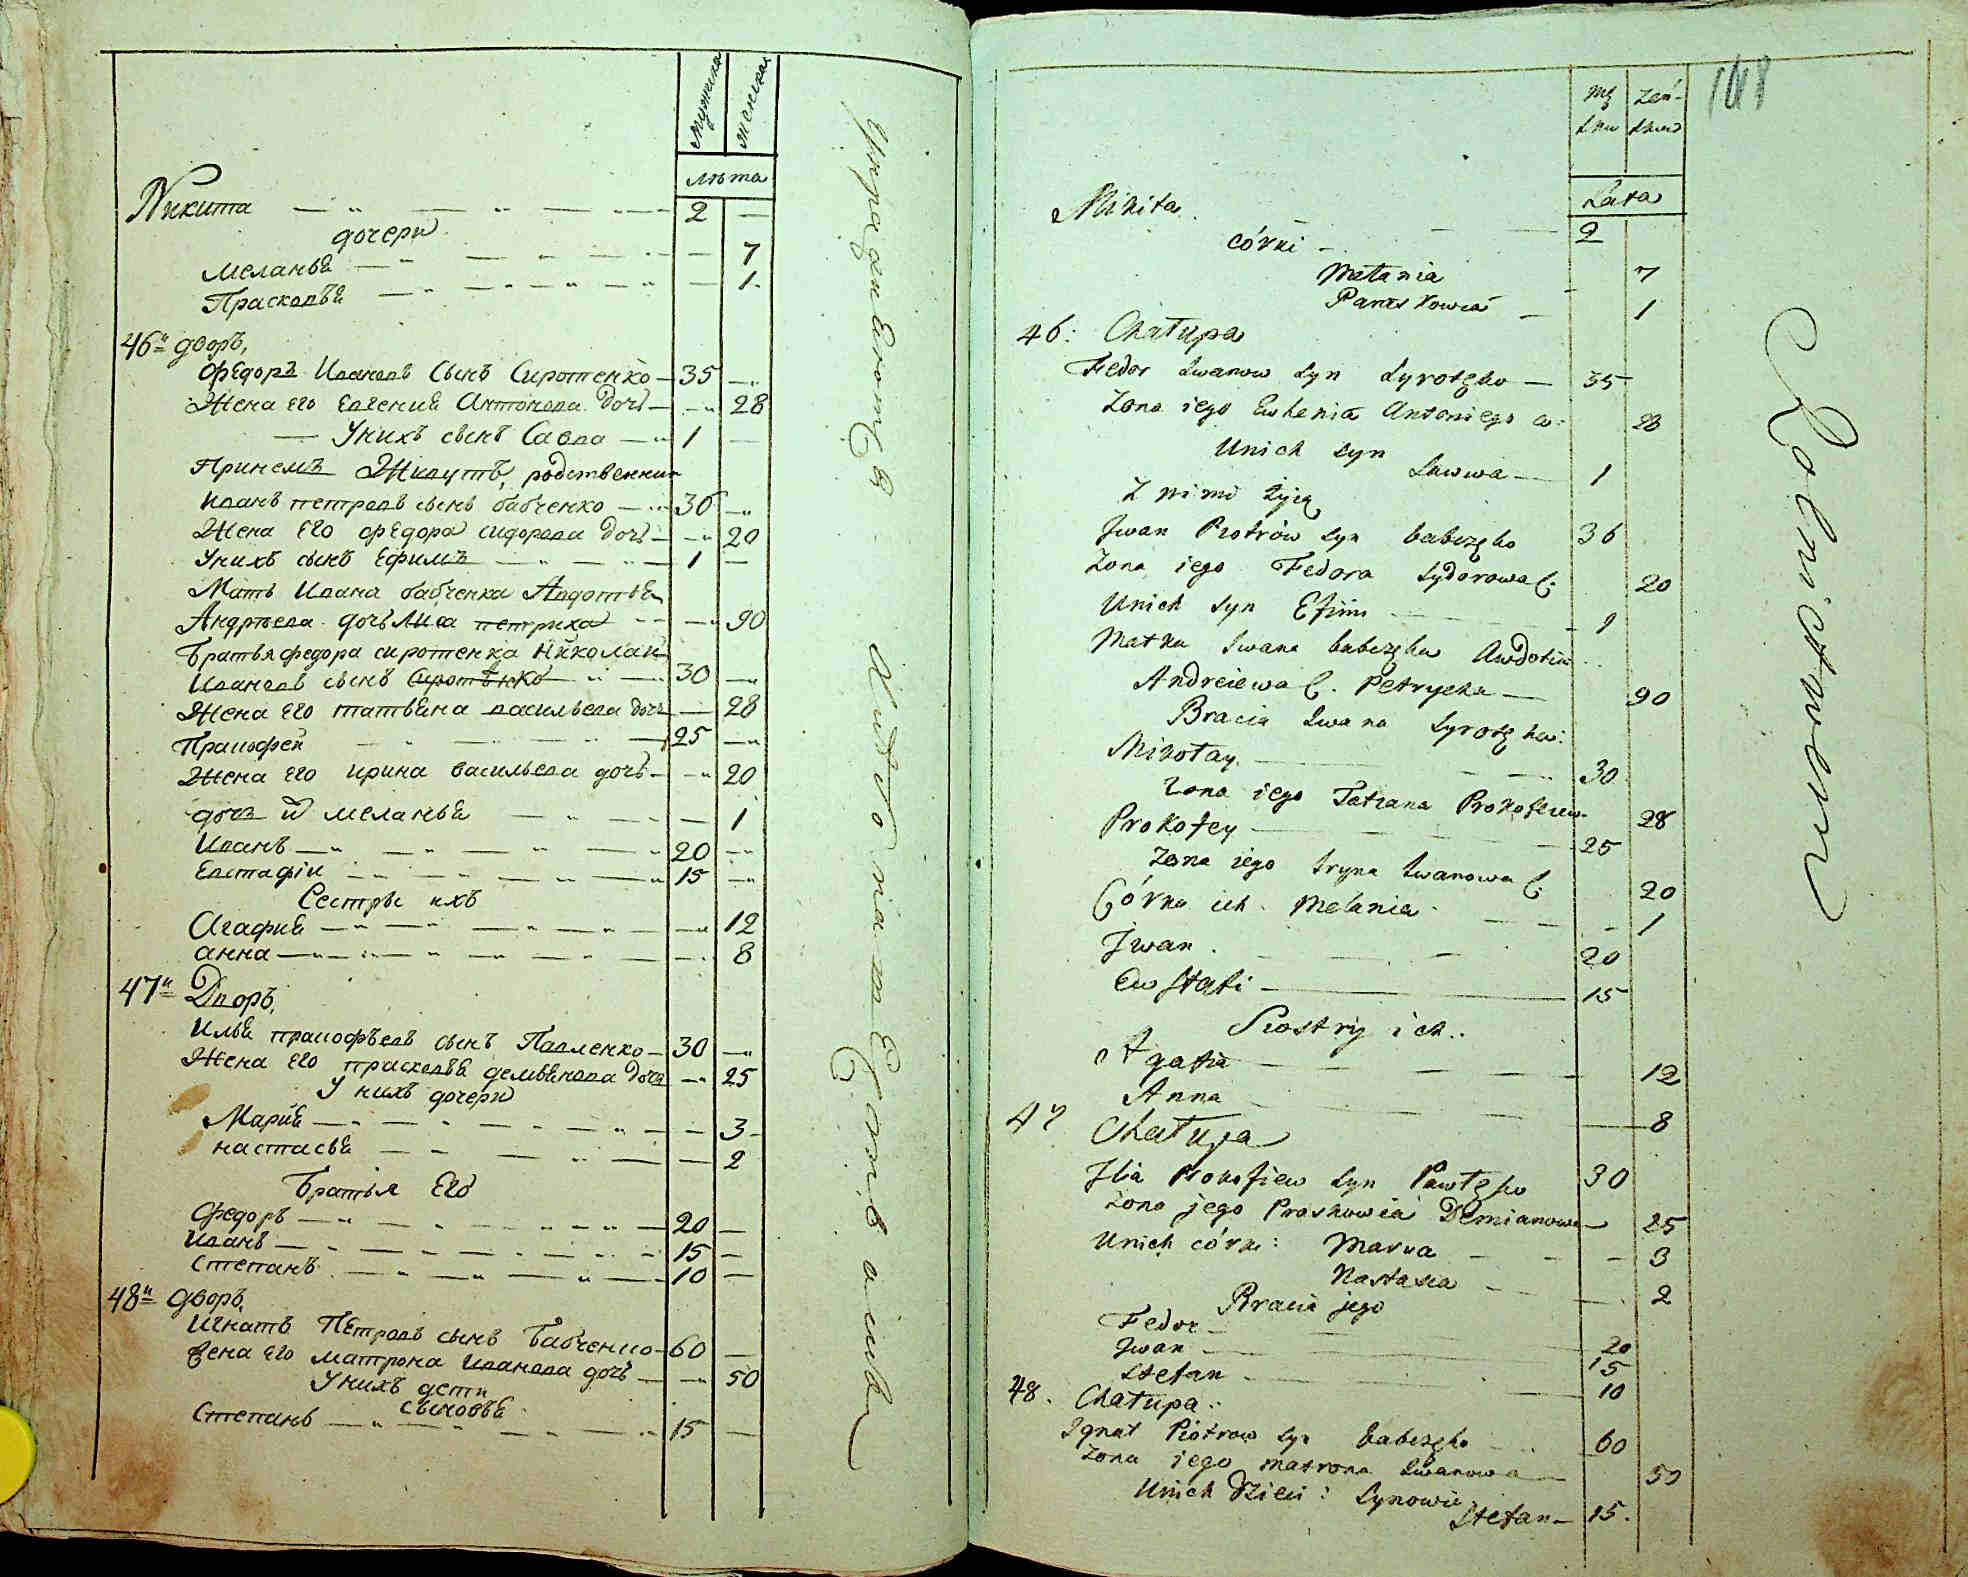 Мужеска женская
лѣта
Никита 2
дочери
Меланья 7
Прасковья 1
46й дворъ,
Федоръ Ивановъ Сынъ Сиротенко 35
Жена его Евгения Антонова дочь 28
У нихъ сынъ Савва 1
При немъ Живутъ, родственники
Иванъ петровъ сынъ бабченко 36
Жена Его федора сидорова дочь 20
У нихъ сынъ Ефимъ 1
Мать Ивана бабченка Авдотья
Андрѣева дочь петриха 90
Братья федора сиротенка Николай
Ивановъ сынъ Сиротѣнко 30
Жена Его татьяна васильева дочь 28
Прокофей 25
Жена Его ирина васильева дочь 20
дочь меланья 1
Иванъ 20
Евстафiй 15
Сестры ихъ
Агафия 12
анна 8
47й Дворъ,
Илья прокофьевъ сынъ Павленко 30
Жена Его прасковья демьянова дочь 25
У нихъ дочери
Мария 3
настасья 2
Братья Его
Федоръ 20
Иванъ 15
Степанъ 10
48й дворъ,
Игнатъ Петровъ сынъ Бабченко 60
Жена Его матрона Иванова дочь 50
У нихъ дети
сыновья
Степанъ 15
148
Mę Żeń-
skie
Lata
Mikita 2
córki
Melania 7
Paraskowia 1
46: Chałupa
Fedor Iwanow Syn Syrotęko 35
Żona iego Ewhenia Antoniego c: 28
Unich Syn
Sawwa 1
Z nimi żyią
Jwan Piotrów Syn babczęko 36
Żona iego Fedora Sydorowa C. 20
Unich Syn Efim 1
Matka Iwana babczęka Awdotia
Andreiewa C. Petrycha 90
Bracia Iwana Syrotęka:
Mikołay 30
Żona iego Tatiana Prokofiewa 28
Prokofey 25
Żona iego Iryna Iwanowa C. 20
Córka ich Melania 1
Jwan 20
Ewstafi 15
Siostry ich
Agafia 12
Anna 8
47 Chałupa
Jlia Prokofiew Syn Pawlęko 30
Żona jego Praskowia Demianowa 25
Unich córki: Marya 3
Nastasia 2
Bracia jego
Fedor 20
Jwan 15
Stefan 10
48. Chałupa
Ignat Piotrow Syn Babczęko 60
Żona iego Matrona Iwanowa 50
Unich Dzieci: Synowie
Stefan 15.